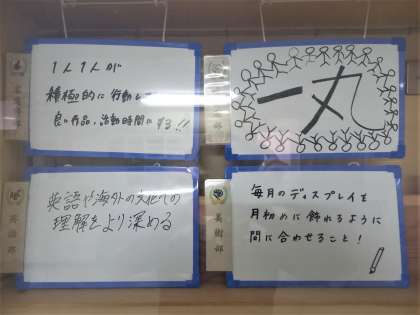 1人1人が
積極的に行動して
良い作品、活動時間にする!!
一丸
部
英語や海外の文化への
理解をより深める
英語部
毎月のディスプレイを
月初めに飾れるように
間に合わせること!
美術部